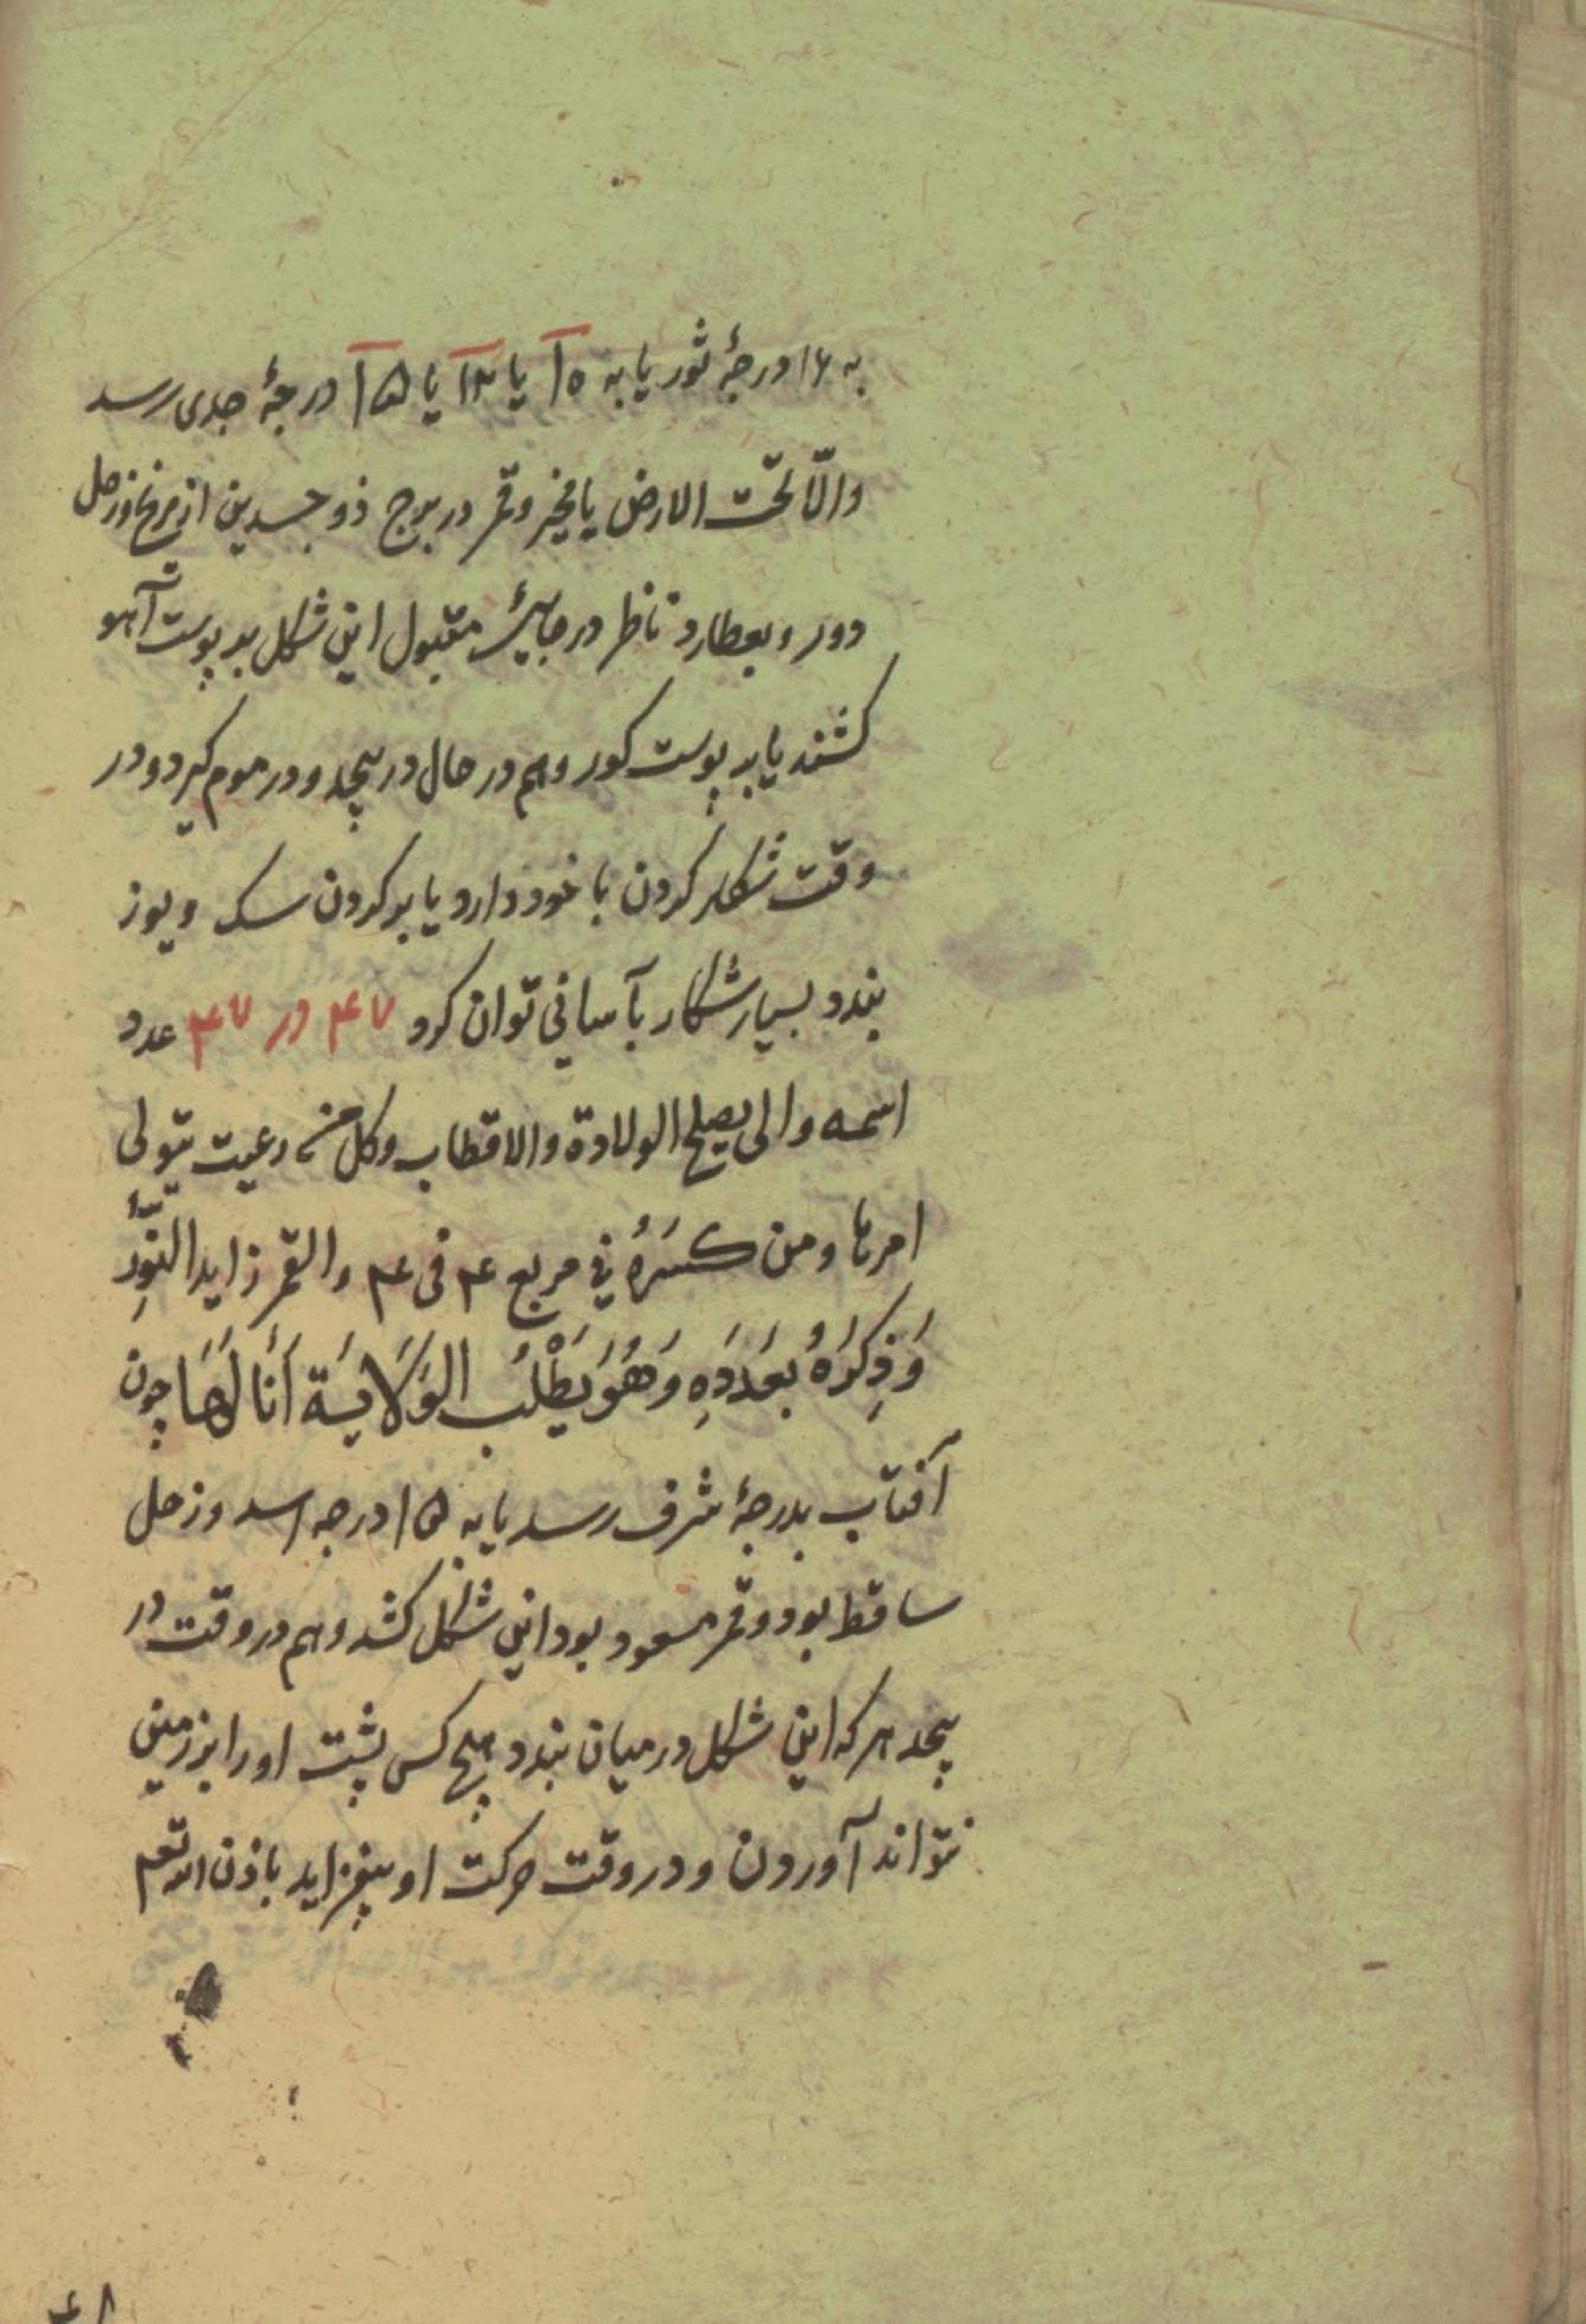 به ۱۶ درجهٔ ثور یا به ۱۵ یا ۱۳ یا ۱۵ درجهٔ جدی رسد
والّا تحت الارض یا مخیر وقمر در برج ذو جسدین از مریخ وزحل
دور وبعطارد ناظر در جایی مقبول این شکل بر پوست آهو
کشند یا بر پوست کور وهم در حال در پیچد ودر موم کیرد ودر
وقت شکار کردن با خود دارد یا بر کردن سک ویوز
بندد بسیار شکار بآسانی توان کرد ۴۷ در ۴۷ عدد
اسمه والی یصلح الولادة والاقطاب وکل من رعیت یتولی
امرها ومن کسَرهُ فی مربع ۴ فی ۴ والقمر زاید النّور
وَذِکرَهُ بعَدَدِه وَهُوَ یَطْلُبُ الوَلَایَة اَنَا لَهَا چون
آفتاب بدرجهٔ شرف رسد یا به ۱۵ درجه اسد وزحل
ساقط بود وقمر مسعود بود این شکل کشد وهم در وقت در
پیچد هر که این شکل در میان بندد هیچ کس پشت او را بر زمین
نتواند آوردن ودر وقت حرکت او بیفزاید باذن الله تعم
۴۸